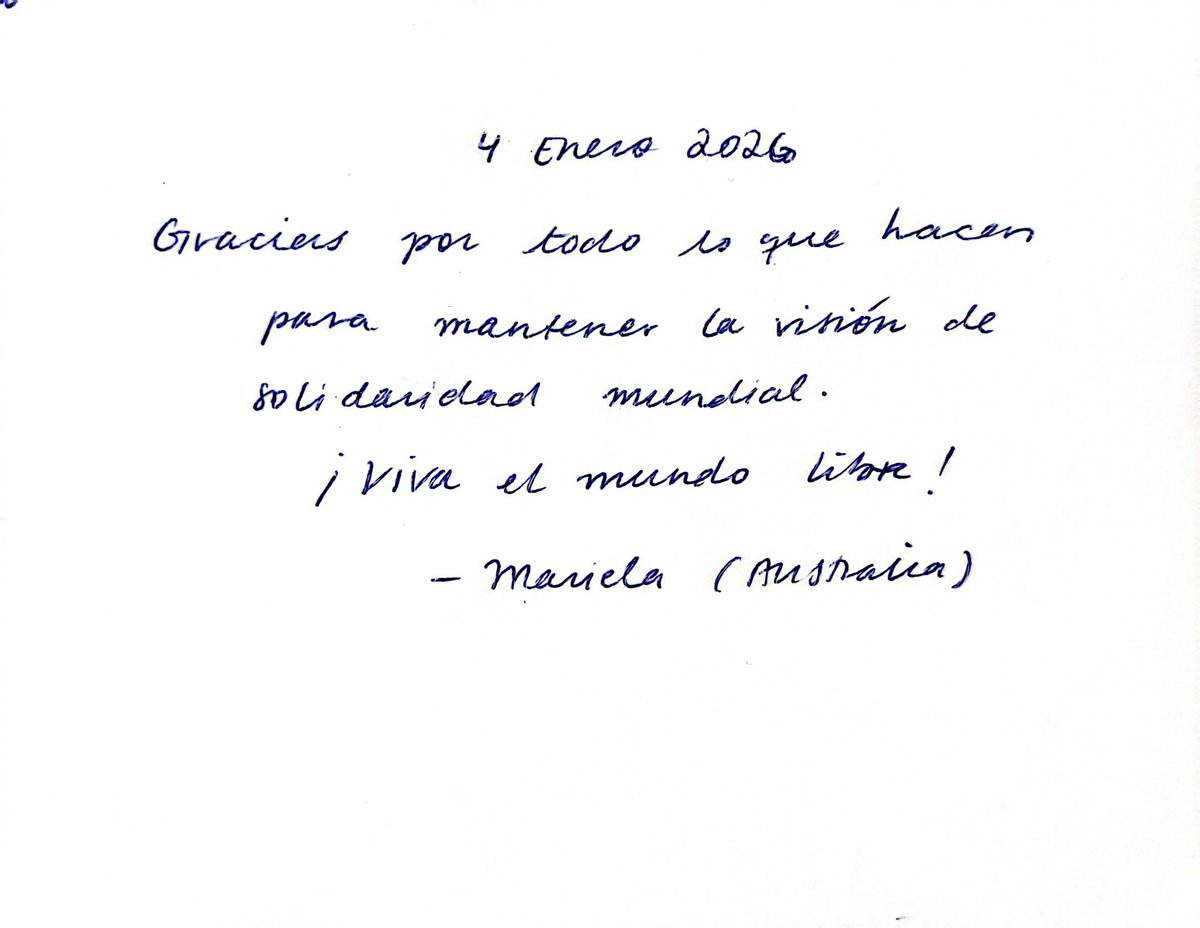 4 Enero 2026
Gracias por todo lo que hacen
para mantener la visión de
solidaridad mundial.
¡Viva el mundo libre!
– Mariela (Australia)